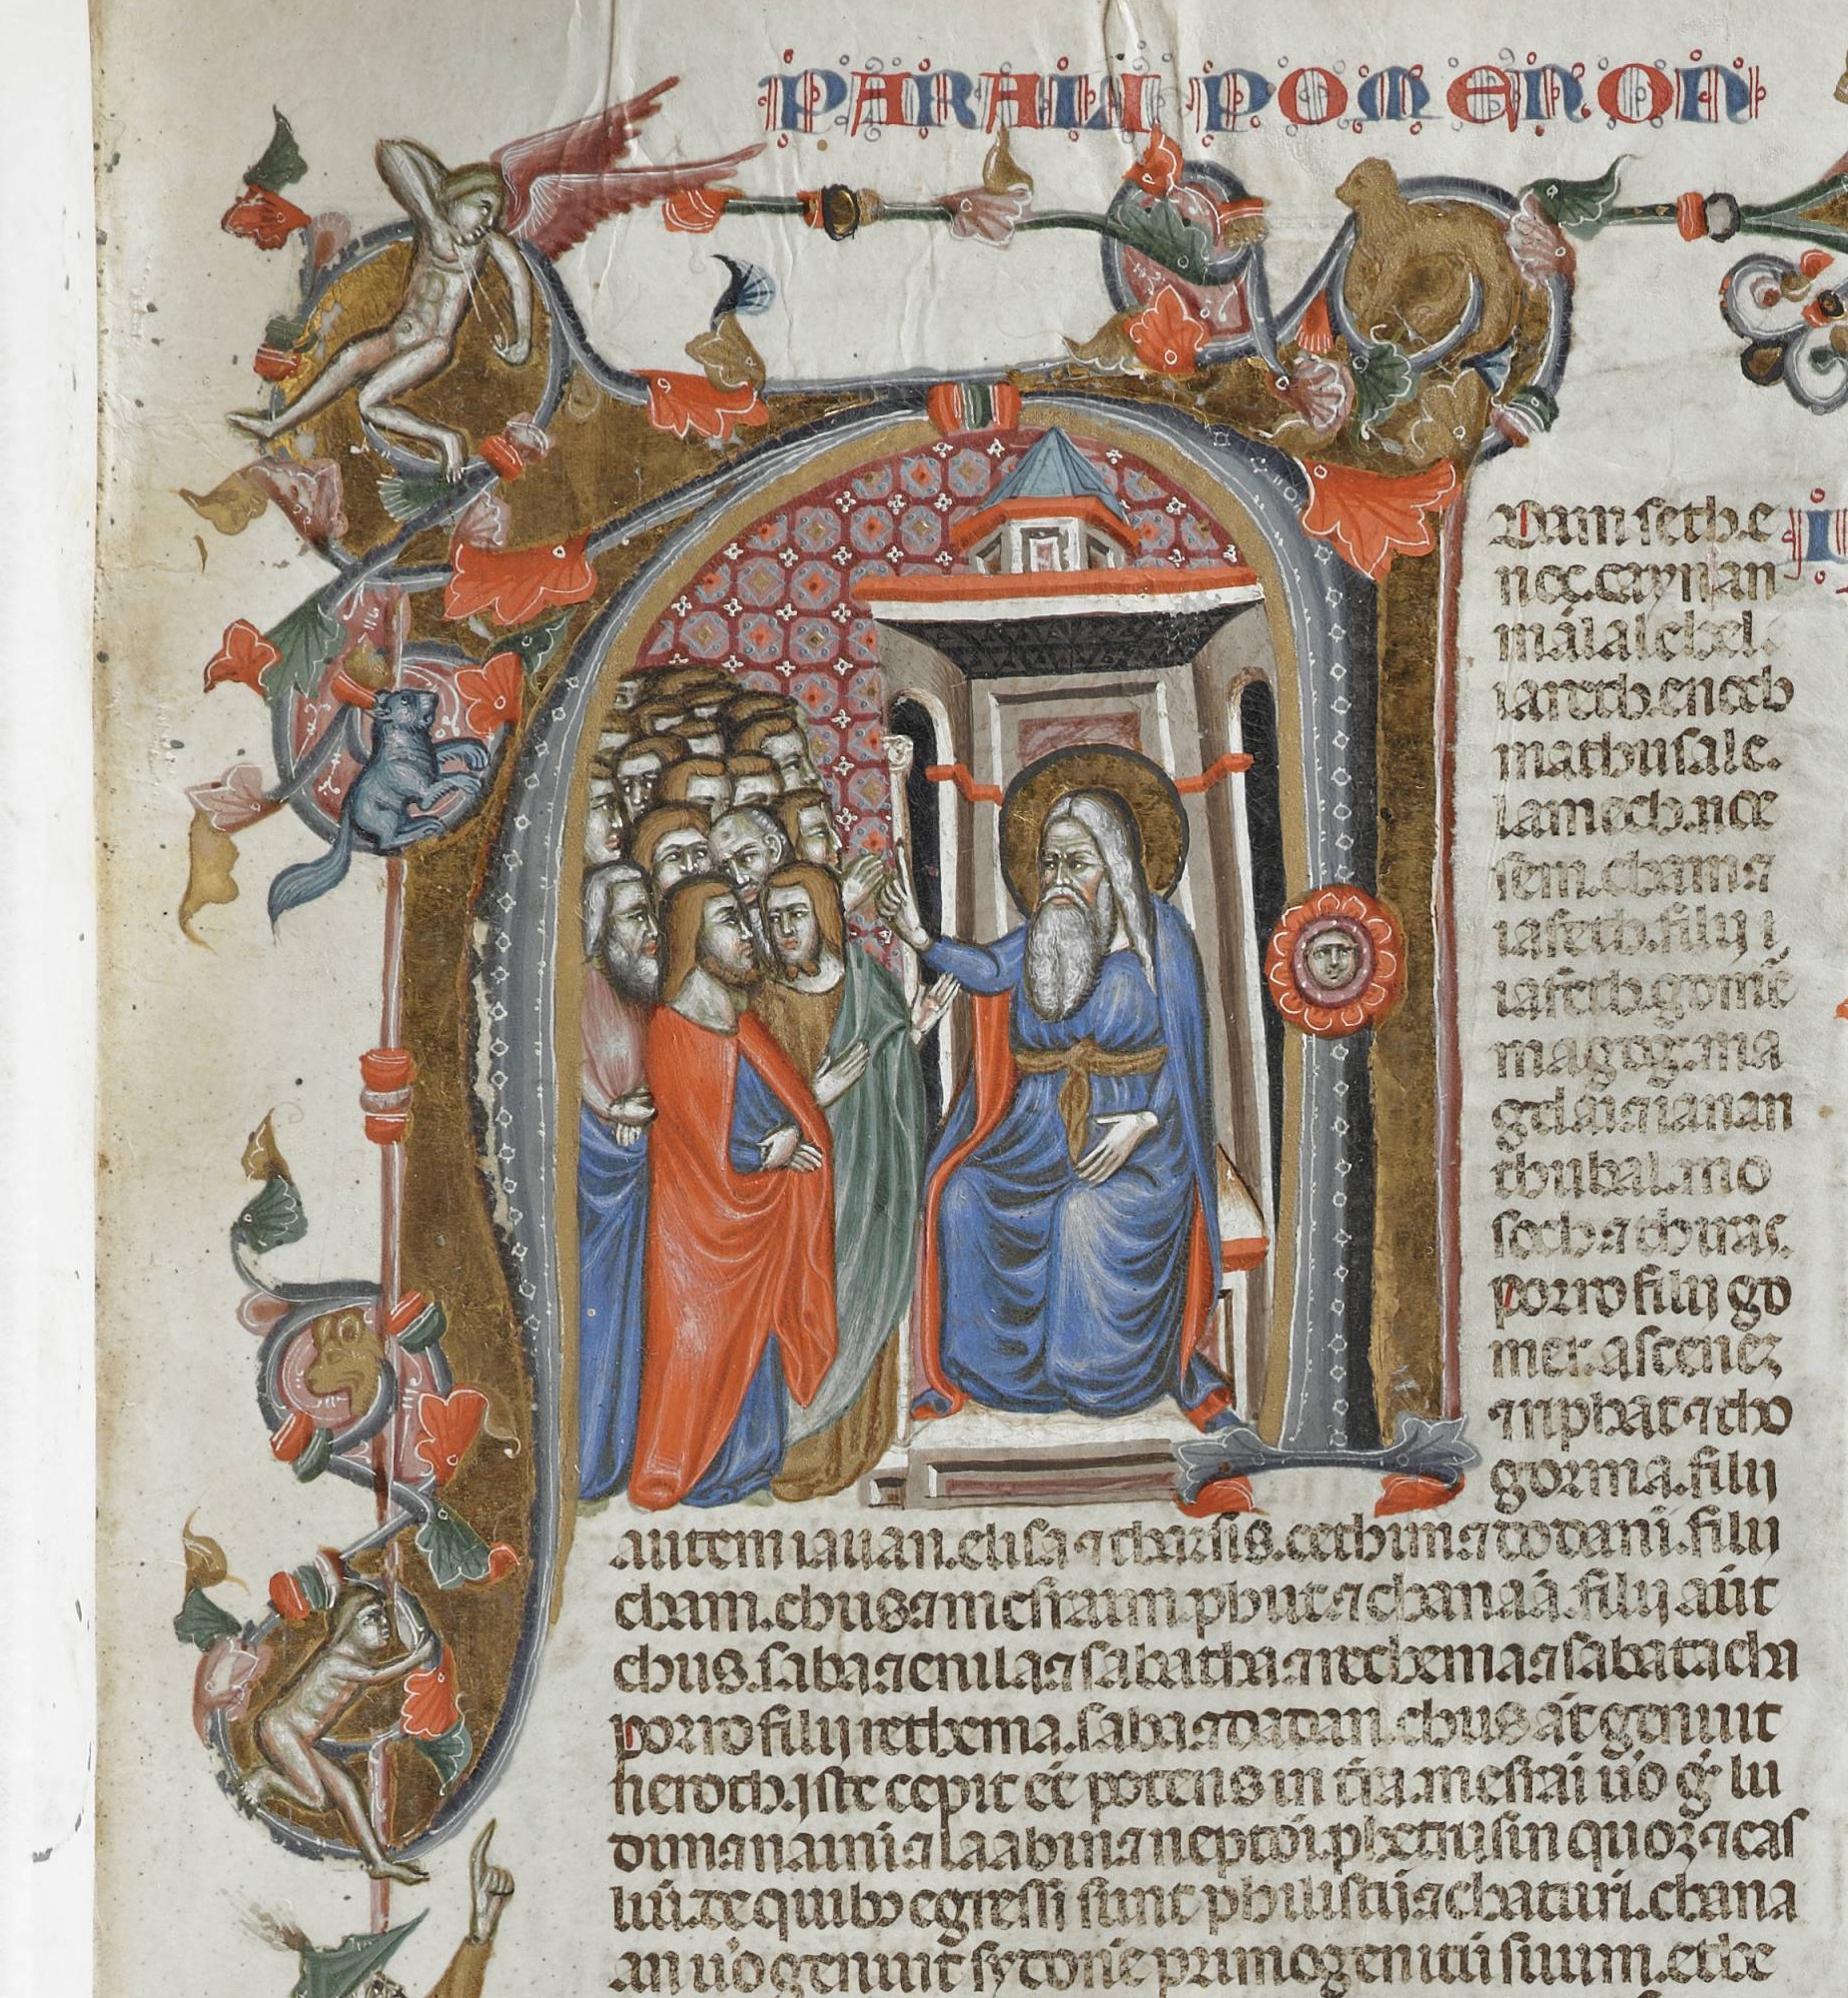 PARALIPOMENON
A
Dam seth e
nos. caynan
malalehel.
iareth. enoch
mathusale.
lamech. noe
sem. cham. ⁊
iafeth. filij i
iafeth. gomẽ
magog. ma
gdai. ⁊ iauan
thubal. mo
soch. ⁊ thiras.
porro filij go
mer. ascenez
⁊ riphat ⁊ tho
gorma. filij
autem iauan. elisa ⁊ tharsis. cethim. ⁊ dodani. filij
cham. chus. ⁊ mesraim. phut. ⁊ chanaã. filij aũt
chus. saba ⁊ euila ⁊ sabatha. ⁊ rechema. ⁊ sabatacha
porro filij rethema. saba. ⁊ dadan. chus át genuit
neroth. iste cepit eẽ potens in tr̃a. mesrai ũo g̃ lu
dim. ⁊ naimi. ⁊ laabin. ⁊ neptoi. phetrusin quoꝫ ⁊ cas
luĩ. de quibꝫ egressi sunt philistij ⁊ chaturi. chana
an ũo genuit sydonẽ primogenitũ suum. ethe